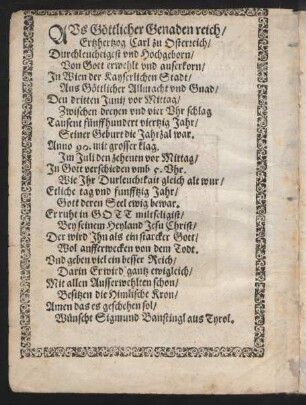 AUs Göttlicher Genaden reich/
Ertzhertzog Carl zu Osterreich/
Durchleuchtigest vnd Hochgeborn/
Von Gott erwehlt vnd auserkorn/
In Wien der Kayserlichen Stadt/
Aus Göttlicher Allmacht vnd Gnad/
Den dritten Junij vor Mittag/
Zwischen dreyen vnd vier Vhr schlag
Tausent fünffhundert viertzig Jahr/
Seiner Geburt die Jahrzal war.
Anno 90. mit grosser klag.
Im Juli den zehenen vor Mittag/
In Gott verschieden vmb 5. Vhr.
Wie Ihr Durleuchtkait gleich alt wur/
Etliche tag vnd funfftzig Jahr/
Gott deren Seel ewig bewar.
Er ruht in GOTT milt seligist/
Bey seinem Heyland Jesu Christ/
Der wird Ihn als ein starcker Gott/
Wol aufferwecken von dem Todt.
Vnd geben viel ein besser Reich/
Darin Er wird gantz ewigleich/
Mit allen Ausserwehlten schon/
Besitzen die Himlische Kron/
Amen das es geschehen sol/
Wünscht Sigmund Banstingl aus Tyrol.